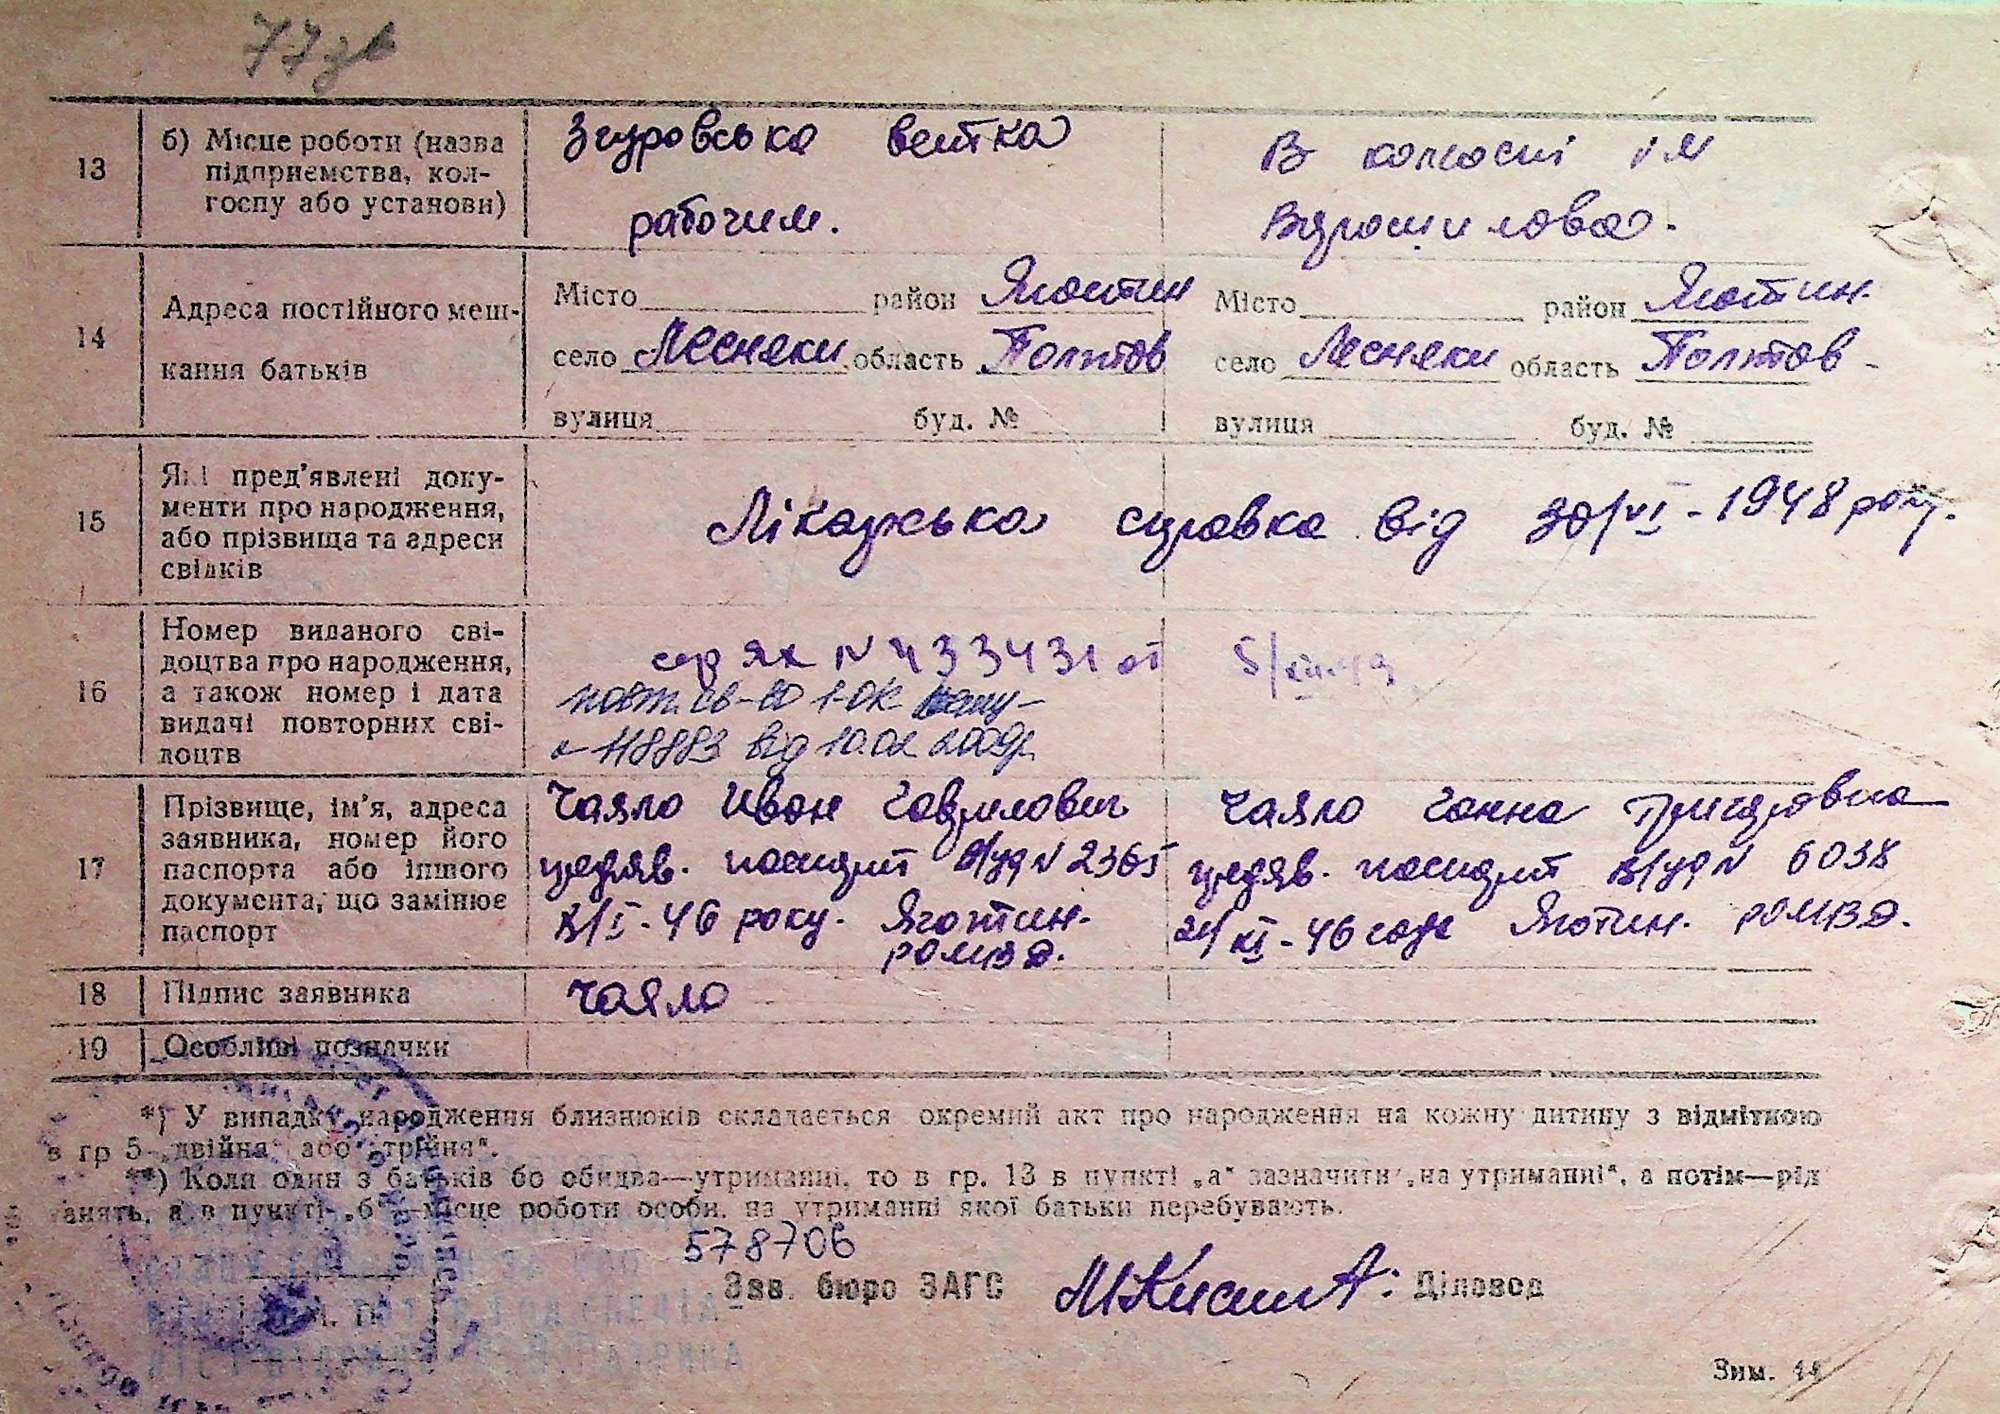 77 зв
13 б) Місце роботи (назва підприємства, колгоспу або установи)
Згуровська ветка
рабочим.
В колгоспі ім
Ворошилова.
14 Адреса постійного меш-
кання батьків
Місто район Яготин
село Лесняки область Полтов
вулиця буд. №
Місто район Яготин.
село Лесняки область Полтов-
вулиця буд. №
15 Які пред'явлені доку-
менти про народження,
або прізвища та адреси
свідків
Лікарська справка від 30/VI-1948 року.
16 Номер виданого сві-
доцтва про народження,
а також номер і дата
видачі повторних сві-
доцтв
сер ЯХ N 433431 от 5/
повт. св-во 1-ОК
118883 від 10.02 2009р.
17 Прізвище, ім'я, адреса
заявника, номер його
паспорта або іншого
документа, що замінює
паспорт
Чаяло Иван Гаврилович
предяв. паспорт N 2365
I-46 року. Яготин.
РОМВД.
Чаяло Ганна Григоровна
предяв. паспорт N 6038
XI-46 года Яготин. РОМВД.
18 Підпис заявника
Чаяло
19 Особливі позначки
*) У випадку народження близнюків складається окремий акт про народження на кожну дитину з відміткою
в гр 5 „двійна" або „трійня".
**) Коли один з батьків бо обидва—утриманці, то в гр. 13 в пункті „а" зазначити „на утриманні", а потім—рід
занять, а в пункті „б"—місце роботи особи, на утриманні якої батьки перебувають.
578706
Зав. бюро ЗАГС Діловод
Зим.